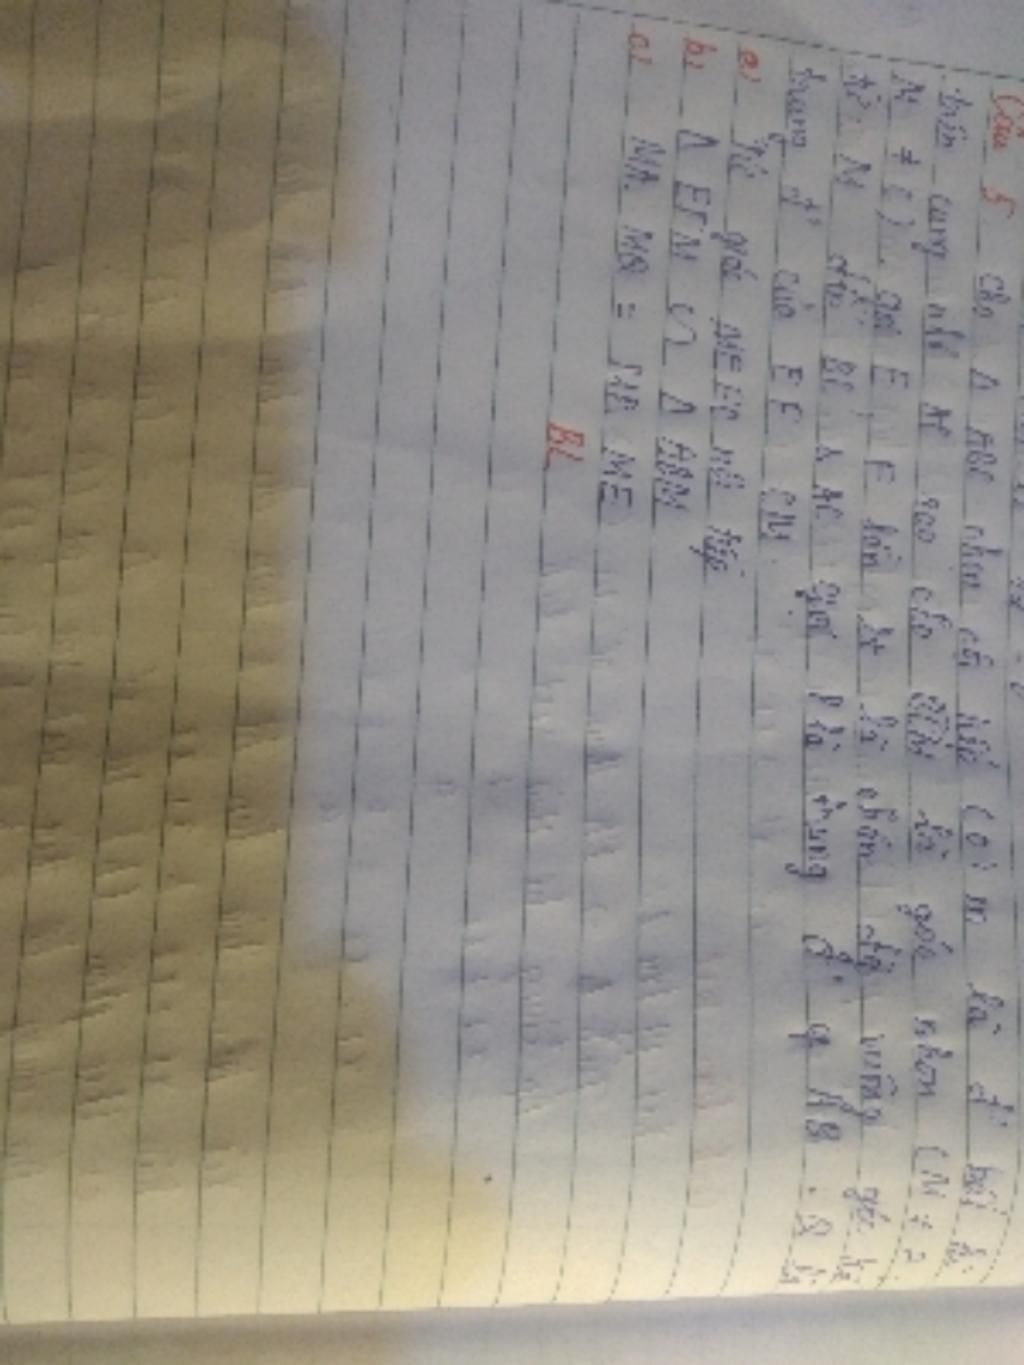 Câu 5 cho Δ ABC nhọn nội tiếp (O) M là đ' bất kì
trên cung nhỏ AC sao cho BCM là góc nhọn (M ≠ A
M ≠ C). gọi E, F lần lt là chân đg vuông góc kẻ
từ M đến BC, & AC gọi P là trung đ' of AB. Q là
trung đ' của EF CM.
a) Tứ giác MEFC nội tiếp
b) Δ EFM ∽ Δ ABM
c) MA. MQ = MP ME
BL